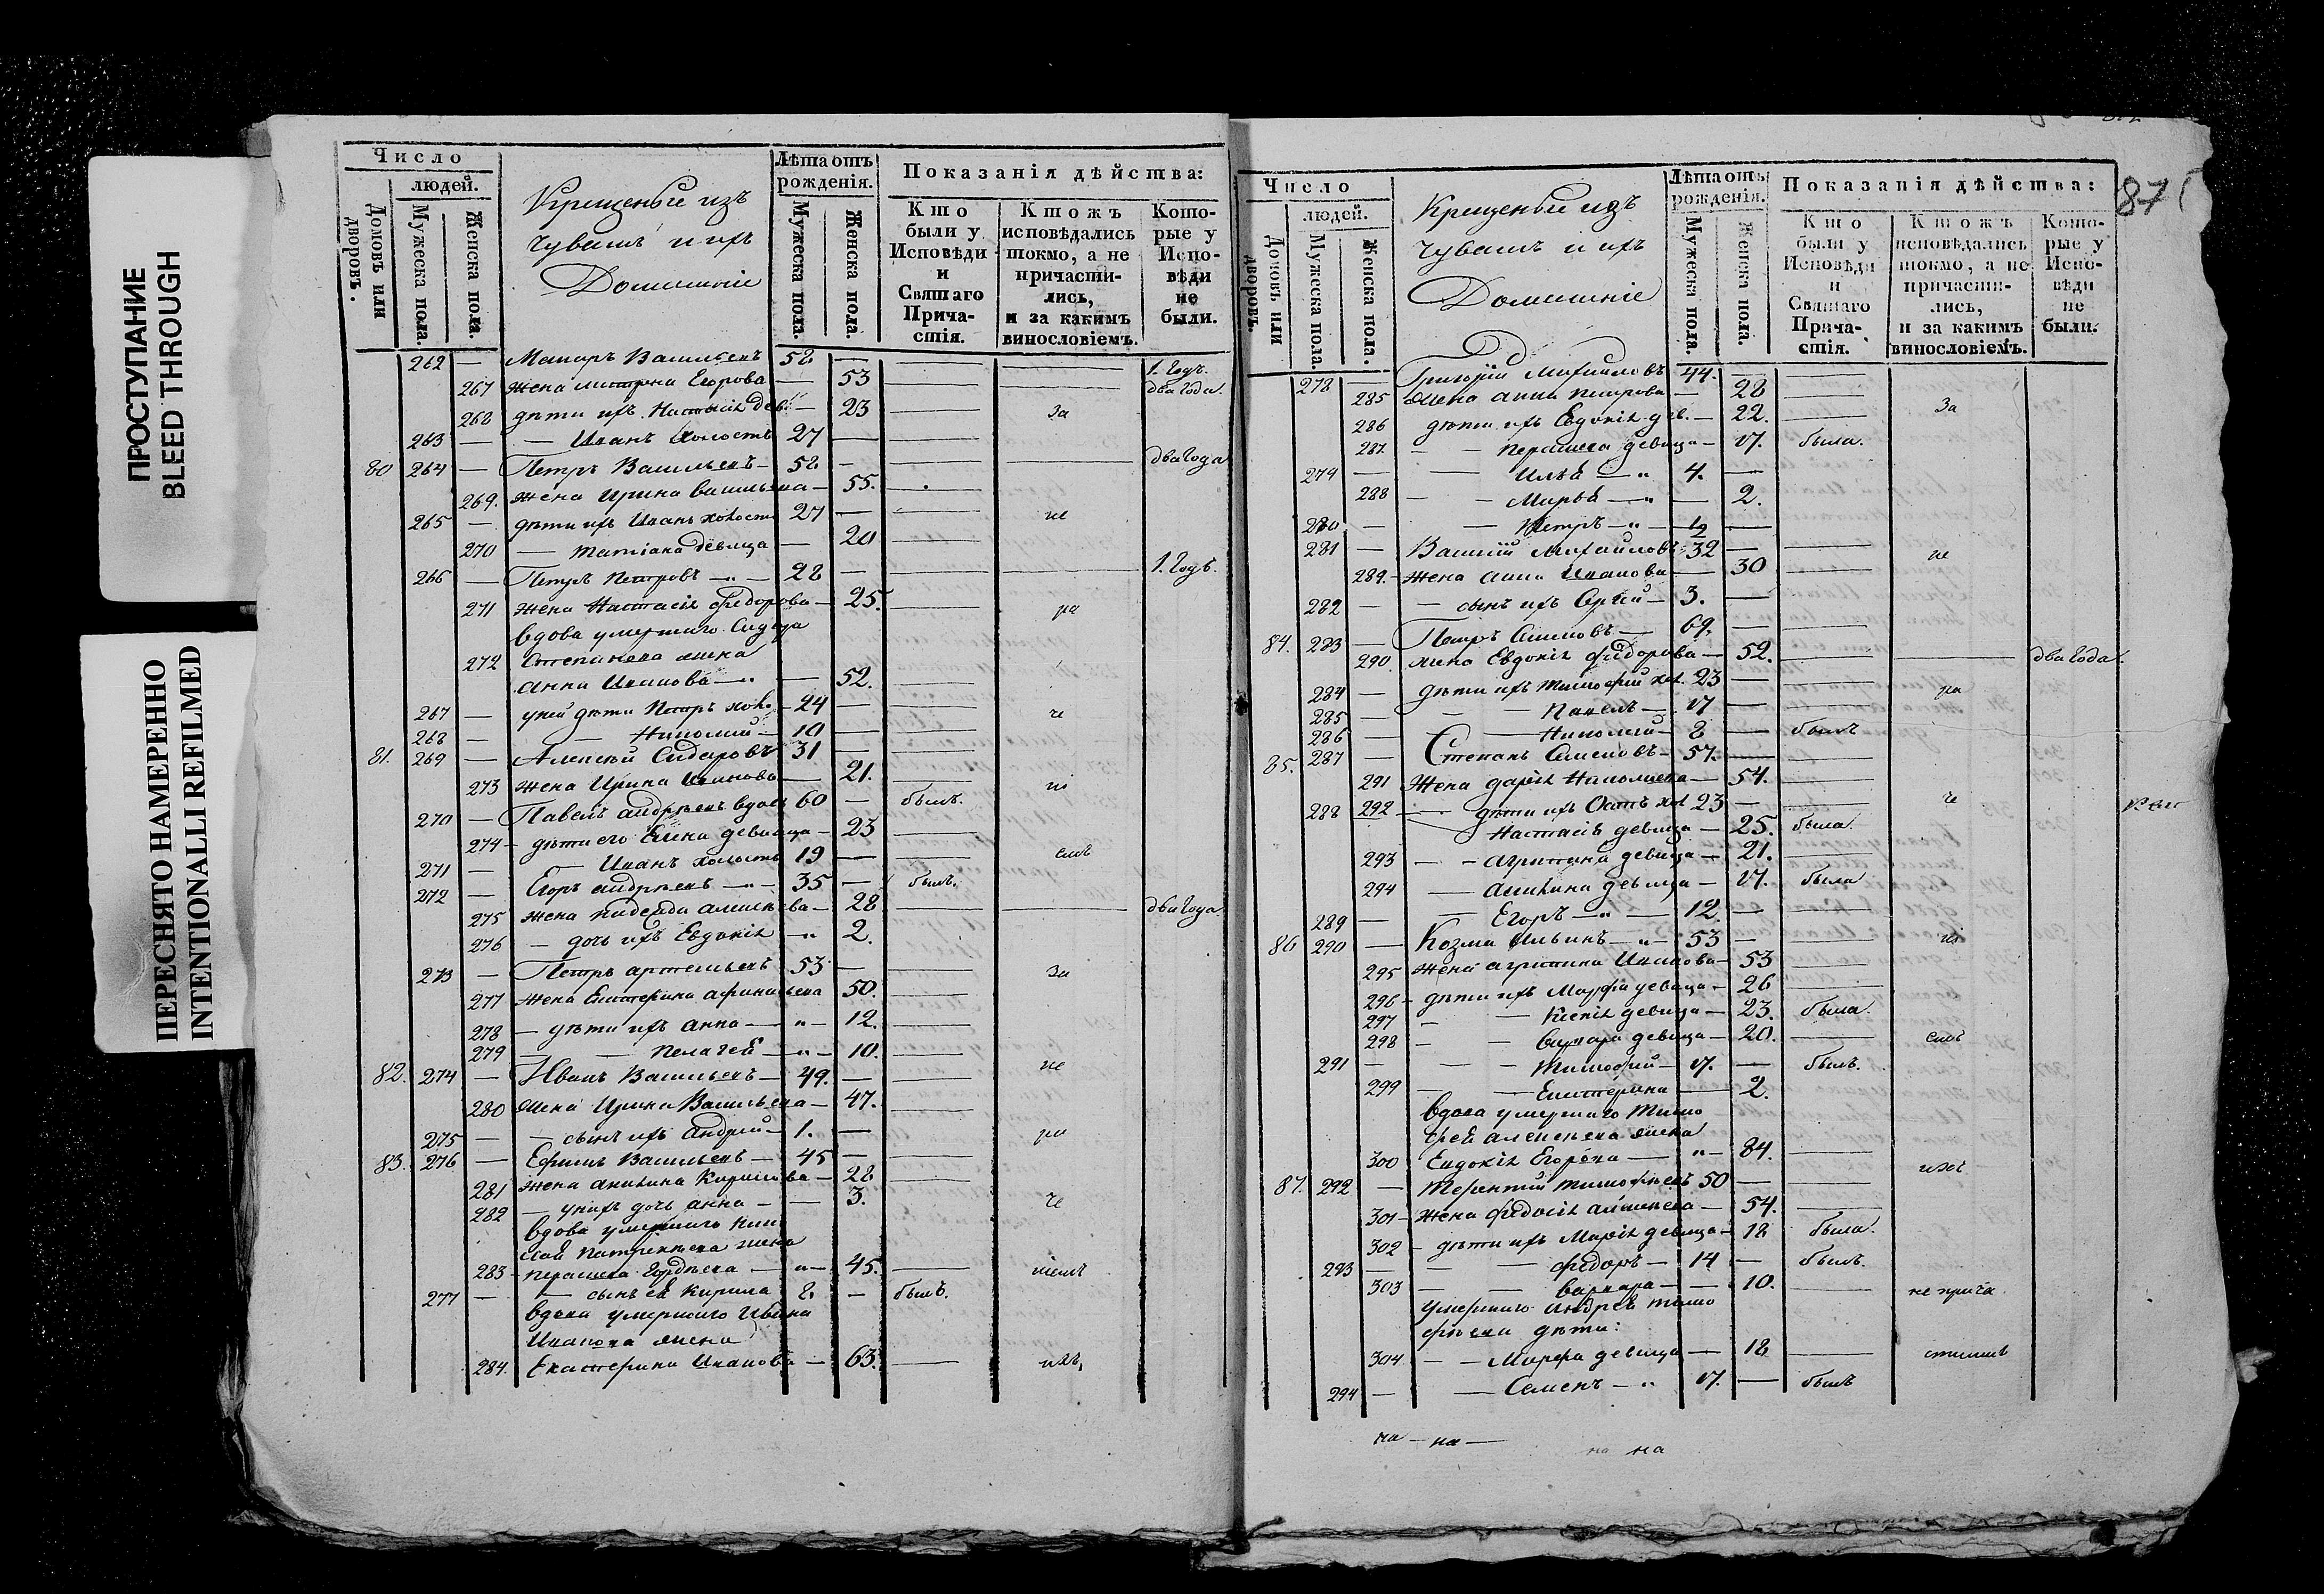 ПРОСТУПАНИЕ
BLEED THROUGH
ПЕРЕСНЯТО НАМЕРЕННО
INTENTIONALLI REFILMED
Число
людей.
Домовъ или дворовъ.
Мужеска пола.
Женска пола.
Крещеные изъ
Чувашъ и ихъ
Домашніе
Лѣта отъ
рожденія.
Мужеска пола.
Женска пола.
Показанія дѣйства:
Кто
были у
Исповѣди
и
Святаго
Прича-
стія.
Ктожъ
исповѣдались
токмо, а не
причасти-
лись,
и за какимъ
винословіемъ.
Кото-
рые у
Испо-
вѣди
не
были.
262 — Макаръ Васильевъ 58 — 1. Годъ.
267 жена Егорова — 53 два Года.
268 дѣти ихъ Настасія дев. — 23 — За
263 — — Иванъ холостъ 27 —
80 264 — Петръ Васильевъ — 58 — два Года
269. жена Ирина Васильева — 55. —
265 — дѣти ихъ Иванъ холостъ 27 — не
270 — Татіана девица — 20 —
266 — Петръ Петровъ — „ — 28 — 1. Годъ.
271 жена Настасія Федорова — 25. — ра
вдова умершаго Сидора
272 Степанова жена
Анна Иванова — „ — 52. —
267 — у ней дѣти Петръ холо. — 24 — че
268 — — Николай — 10 —
81. 269 — Алексѣй Сидоровъ 31 —
273 жена Ирина Иванова — 21. —
270 — Павелъ Андрѣевъ вдовъ 60 — былъ.
274 — дѣти его Елена девица — 23 —
271 — — Иванъ холостъ 19 — — емъ
272 — Егоръ Андрѣевъ — „ — 35 — былъ.
275 жена Алексѣева — 28 — два Года
276 — дочь ихъ Евдокія — „ 2.
273 — Петръ Артемьевъ 53 — — За
277 жена Екатерина Афанасьева 50. —
278 — дѣти ихъ Анна — „ — 12. —
279 — — Пелагея — „ — 10. —
82. 274 — Иванъ Васильевъ — 49. — — не
280 жена Ирина Васильева — 47. —
275 — — сынъ ихъ Андрей — 1. — ра
83. 276 — Ефимъ Васильевъ — 45 — —
281 жена Акилина Кирилова — 28
282 — у нихъ дочь Анна — — 3. че
вдова умершаго
жена
283 — Параскева Гордѣева — „ — 45. —
277 — — сынъ ея Кирила 8. — былъ.
вдова умершаго Ивана
Иванова жена
284. Екатерина Иванова — 63. — ихъ,
87
Число
людей.
Домовъ или дворовъ.
Мужеска пола.
Женска пола.
Крещеные изъ
Чувашъ и ихъ
Домашніе
Лѣта отъ
рожденія.
Мужеска пола.
Женска пола.
Показанія дѣйства:
Кто
были у
Исповѣди
и
Святаго
Прича-
стія.
Ктожъ
исповѣдались
токмо, а не
причасти-
лись,
и за какимъ
винословіемъ.
Кото-
рые у
Испо-
вѣди
не
были.
278 — Григорій Михайловъ 44. — —
285 жена Анна Петрова — 28 — За
286 дѣти ихъ Евдокія дев. — 22. —
287. — — Параскева девица — 17. была.
279 — — Илья — „ 4. —
288 — — Марья — „ — 2.
280 — — Петръ — „ — 1/2 —
281 — Василій Михайловъ 32 — — не
289. жена Анна Иванова — 30 —
282 — — сынъ ихъ Сергѣй — 3. —
84. 283 — Петръ Семеновъ — 69. — —
290 жена Евдокія Федорова — 52. — два Года.
284 — дѣти ихъ Тимофей хол. 23 — — ра
285 — — Павелъ — 17 — —
286 — — Николай — 8 — былъ
85. 287 — Степанъ Семеновъ — 57. — —
291 жена Дарія Николаева — 54. — че
288 292 — дѣти ихъ хол 23 — —
Настасія девица — 25. была.
293 — — Агрипина девица — 21. —
294 — Акилина девица — 17. была
289 — — Егоръ — „ — 12. — —
86 290 — Козма Ильинъ — „ — 53 — —
295 жена Агрипина Иванова — 53 —
296 — дѣти ихъ Марфа девица — 26 —
297 — — Ксенія девица — 23. была.
298 — — Варвара девица — 20. — емъ
291 — — — Тимофей — 17. — былъ.
299 — — Екатерина — 2.
вдова умершаго Тимо
фея Алексѣева жена
300 Евдокія Егорова — „ — 84. —
87. 292 — Терентій Тимофѣевъ 50 — —
301 — жена Федосія — 54. —
302 — дѣти ихъ Марія девица — 18 была.
293 — — Федоръ — 14 — былъ.
303 — — Варвара — — 10. — не прича
умершаго Андрея Тимо
фѣева дѣти:
304 — — Марфа девица — 18 —
294 — — Семенъ — „ 17. — былъ
на — на — на на